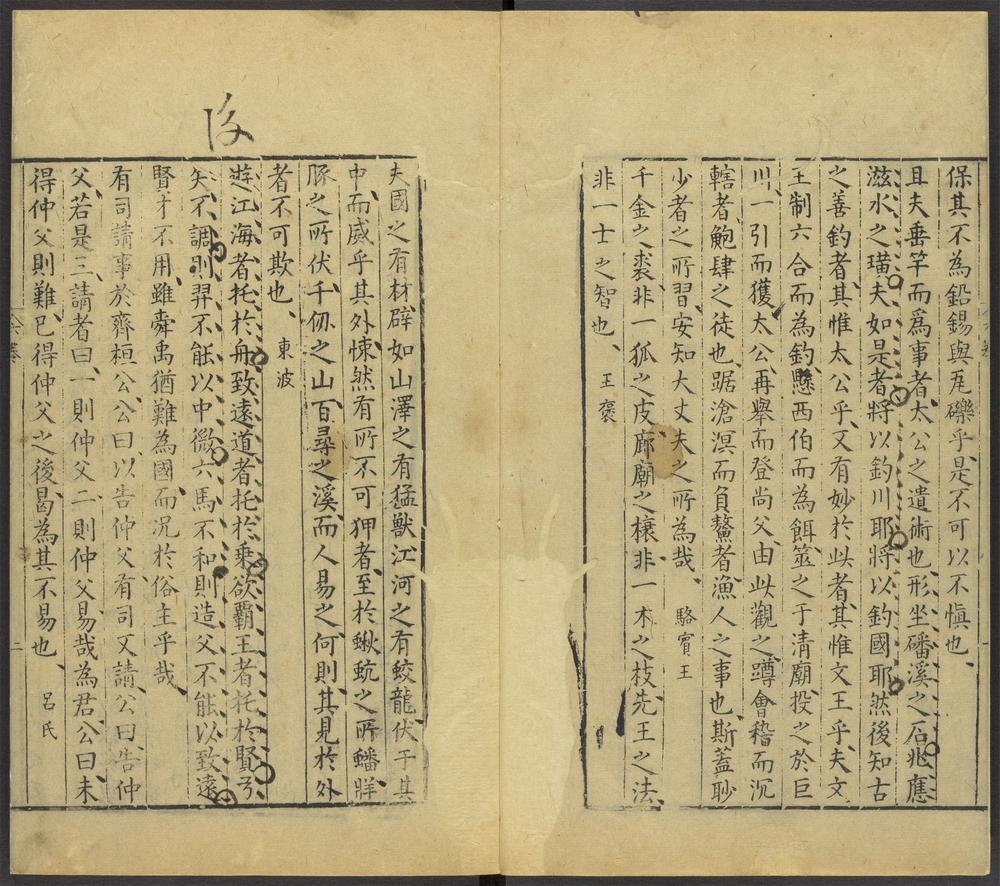 保其不為鉛錫與瓦礫乎是不可以不慎也
且夫垂竿而爲事者太公之遺術也形坐磻溪之石兆應
滋水之璜夫如是者將以釣川耶將以釣國耶然後知古
之善釣者其惟太公乎又有妙於此者其惟文王乎夫文
王制六合而為釣懸西伯而為餌筮之于清廟投之於巨
川一引而獲太公再舉而登尚父由此觀之蹲會稽而沉
轄者鮑肆之徒也踞滄溟而負鰲者漁人之事也斯蓋耿
少者之所習安知大丈夫之所為哉 駱賓王
千金之裘非一狐之皮廊廟之榱非一木之枝先王之法
非一士之智也 王褒
后
夫國之有材辟如山澤之有猛獸江河之有蛟龍伏于其
中而威乎其外悚然有所不可狎者至於鰍蚖之所蟠牂
豚之所伏千仞之山百尋之溪而人易之何則其見於外
者不可欺也 東波
遊江海者托於舟致遠道者托於乘欲霸王者托於賢弓
矢不調則羿不能以中微六馬不和則造父不能以致遠
賢才不用雖舜禹猶難為國而況於俗主乎哉
有司請事於齊桓公公曰以告仲父有司又請公曰告仲
父若是三請者曰一則仲父二則仲父易哉為君公曰未
得仲父則難已得仲父之後曷為其不易也 呂氏
二